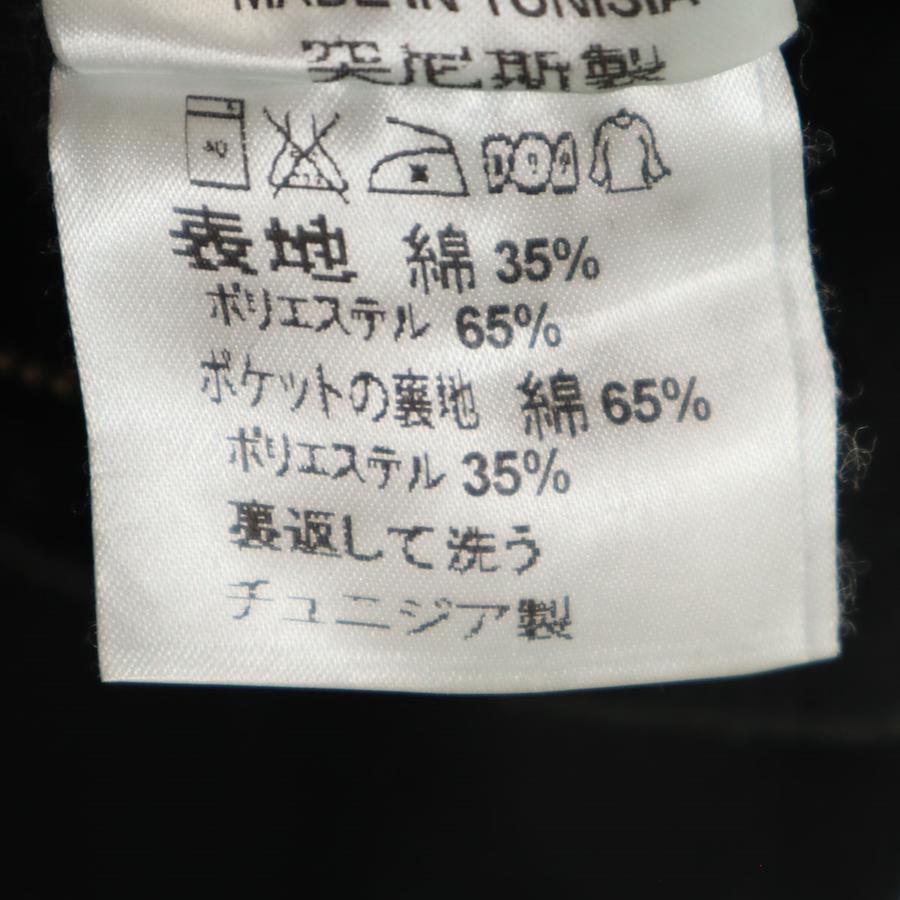 MADE IN TUNISIA
突尼斯製
40
表地 綿 35%
ポリエステル 65%
ポケットの裏地 綿 65%
ポリエステル 35%
裏返して洗う
チュニジア製